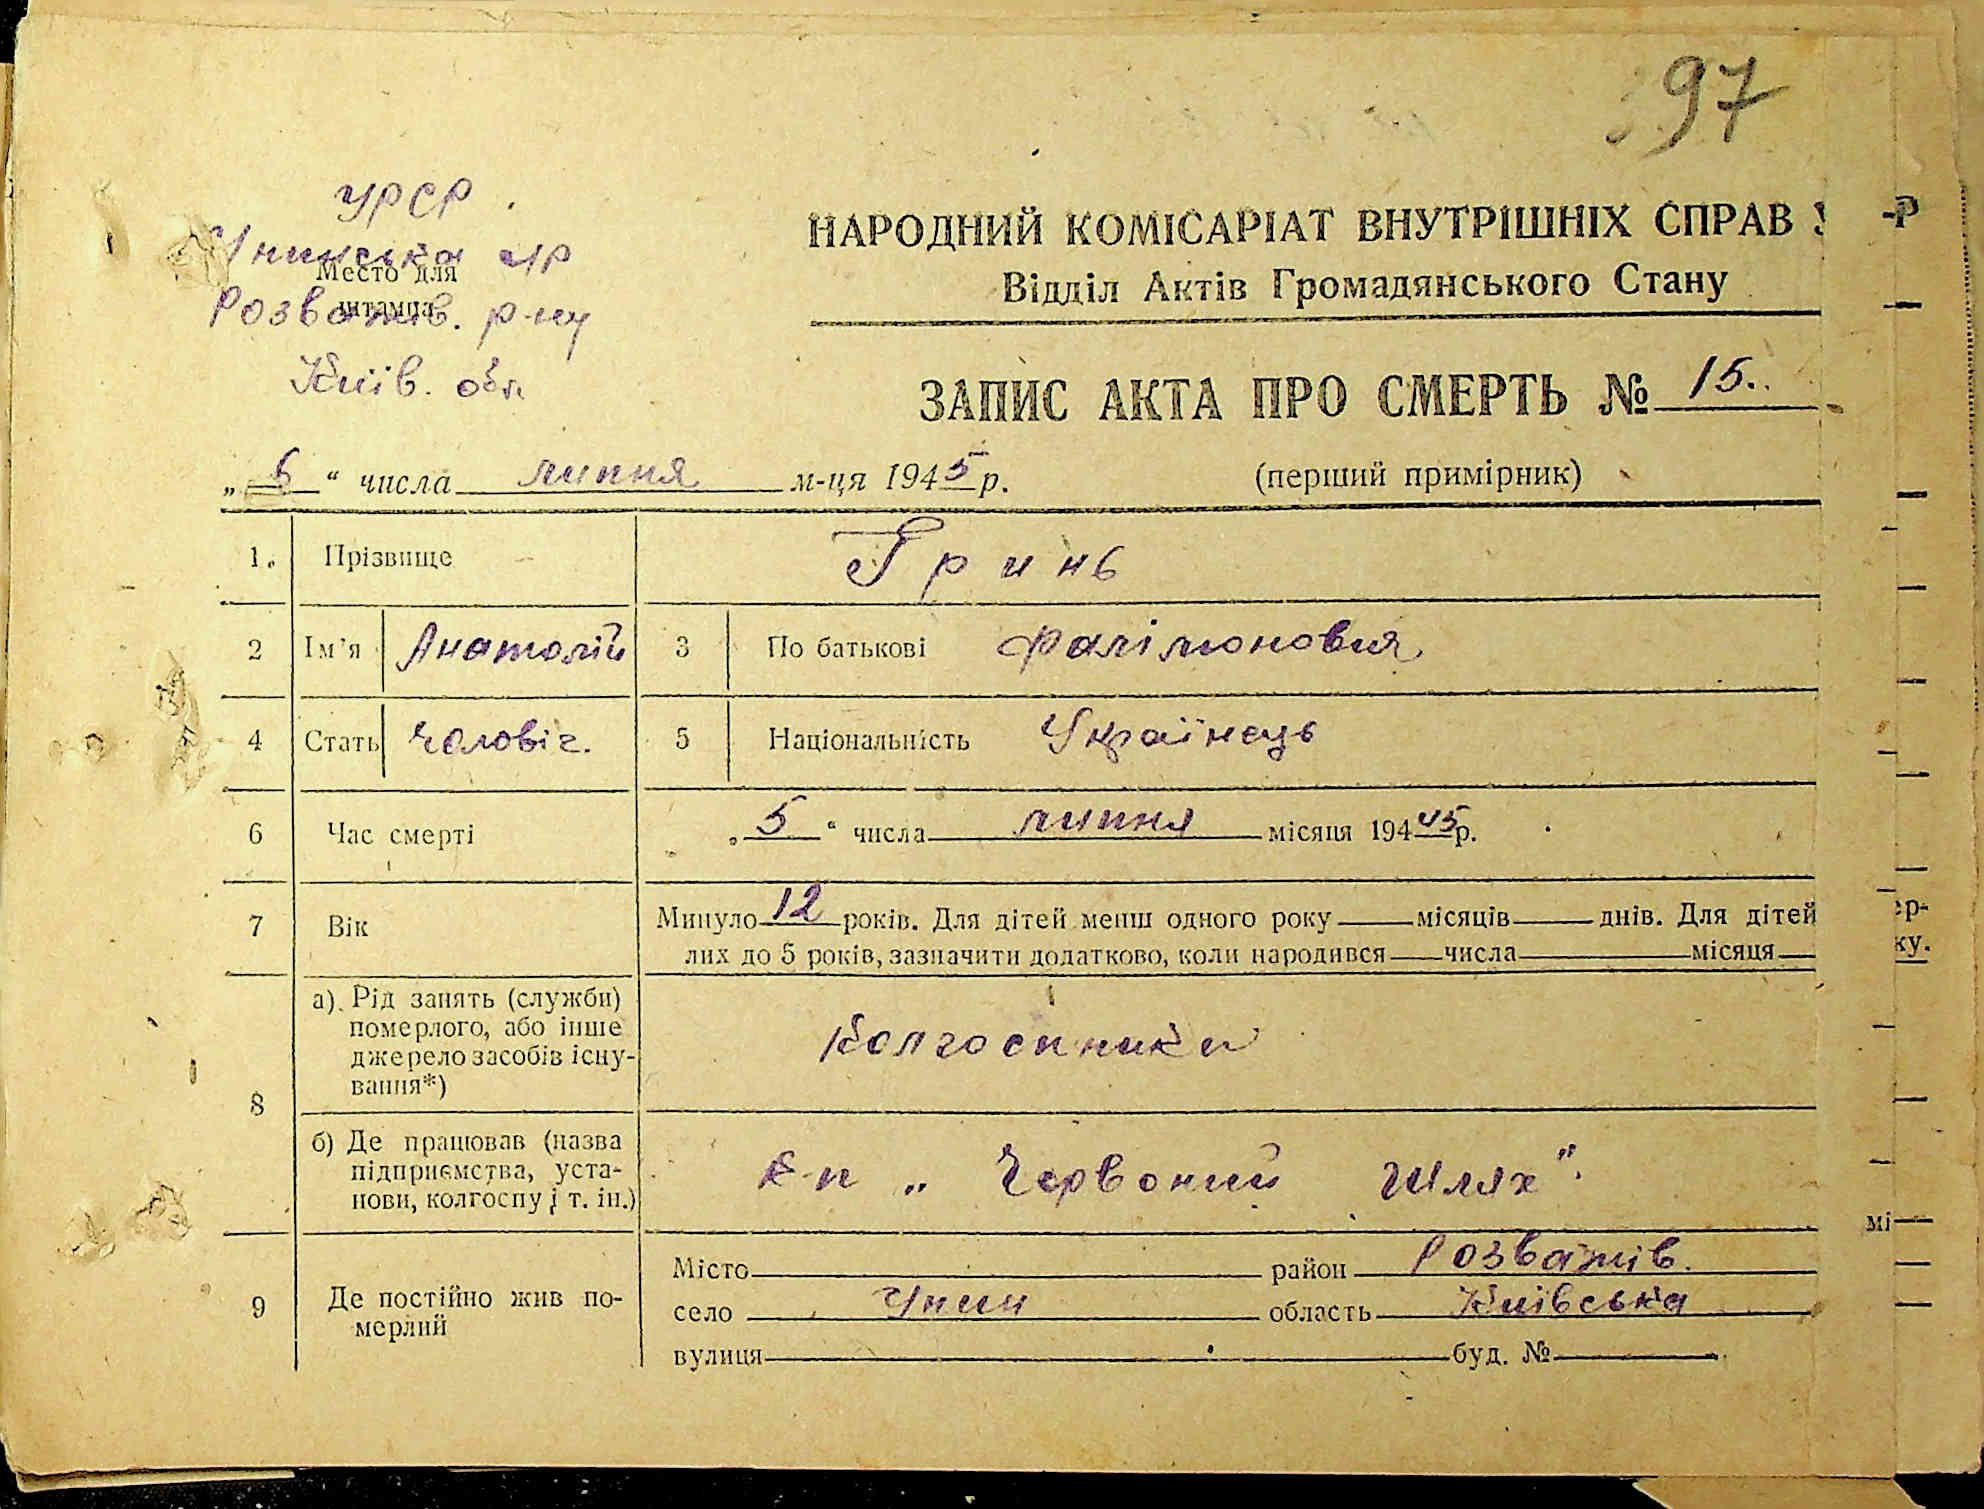 97
УРСР.
Унинська с/р
Место для
штампа
Розважів. р-ну
Київ. обл.
НАРОДНИЙ КОМІСАРІАТ ВНУТРІШНІХ СПРАВ У -Р
Відділ Актів Громадянського Стану
ЗАПИС АКТА ПРО СМЕРТЬ № 15.
„ 6 “ числа липня м-ця 1945 р. (перший примірник)
1. Прізвище Гринь
2 Ім'я Анатолій 3 По батькові Філімонович
4 Стать чоловіч. 5 Національність Українець
6 Час смерті „ 5 “ числа липня місяця 19445р.
7 Вік Минуло 12 років. Для дітей менш одного року місяців днів. Для дітей ер-
лих до 5 років, зазначити додатково, коли народився числа місяця ку.
8 а). Рід занять (служби) померлого, або інше джерело засобів існування*) Колгоспники
б) Де працював (назва підприємства, установи, колгоспу і т. ін.) к-п „Червоний Шлях".
мі
9 Де постійно жив померлий
Місто район Розважів.
село Унин область Київська
вулиця буд. №